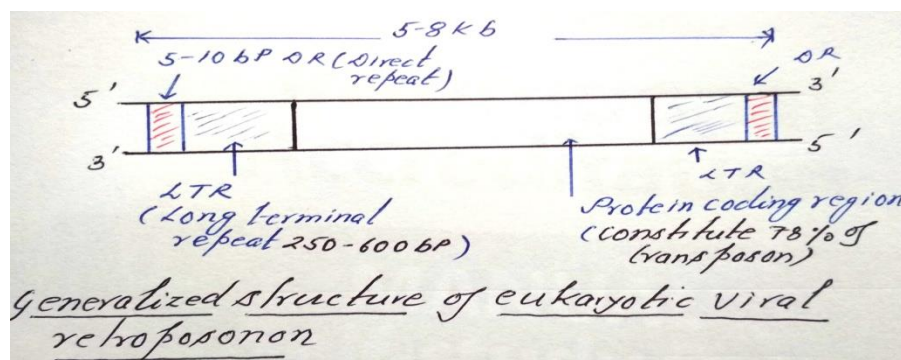 5-8Kb
5-10bP DR (Direct
repeat)
DR
5'
3'
3'
5'
LTR
(Long terminal
repeat 250-600bP)
LTR
Protein coding region
(constitute 78% of
transposon)
Generalized structure of eukaryotic viral
retroposonon